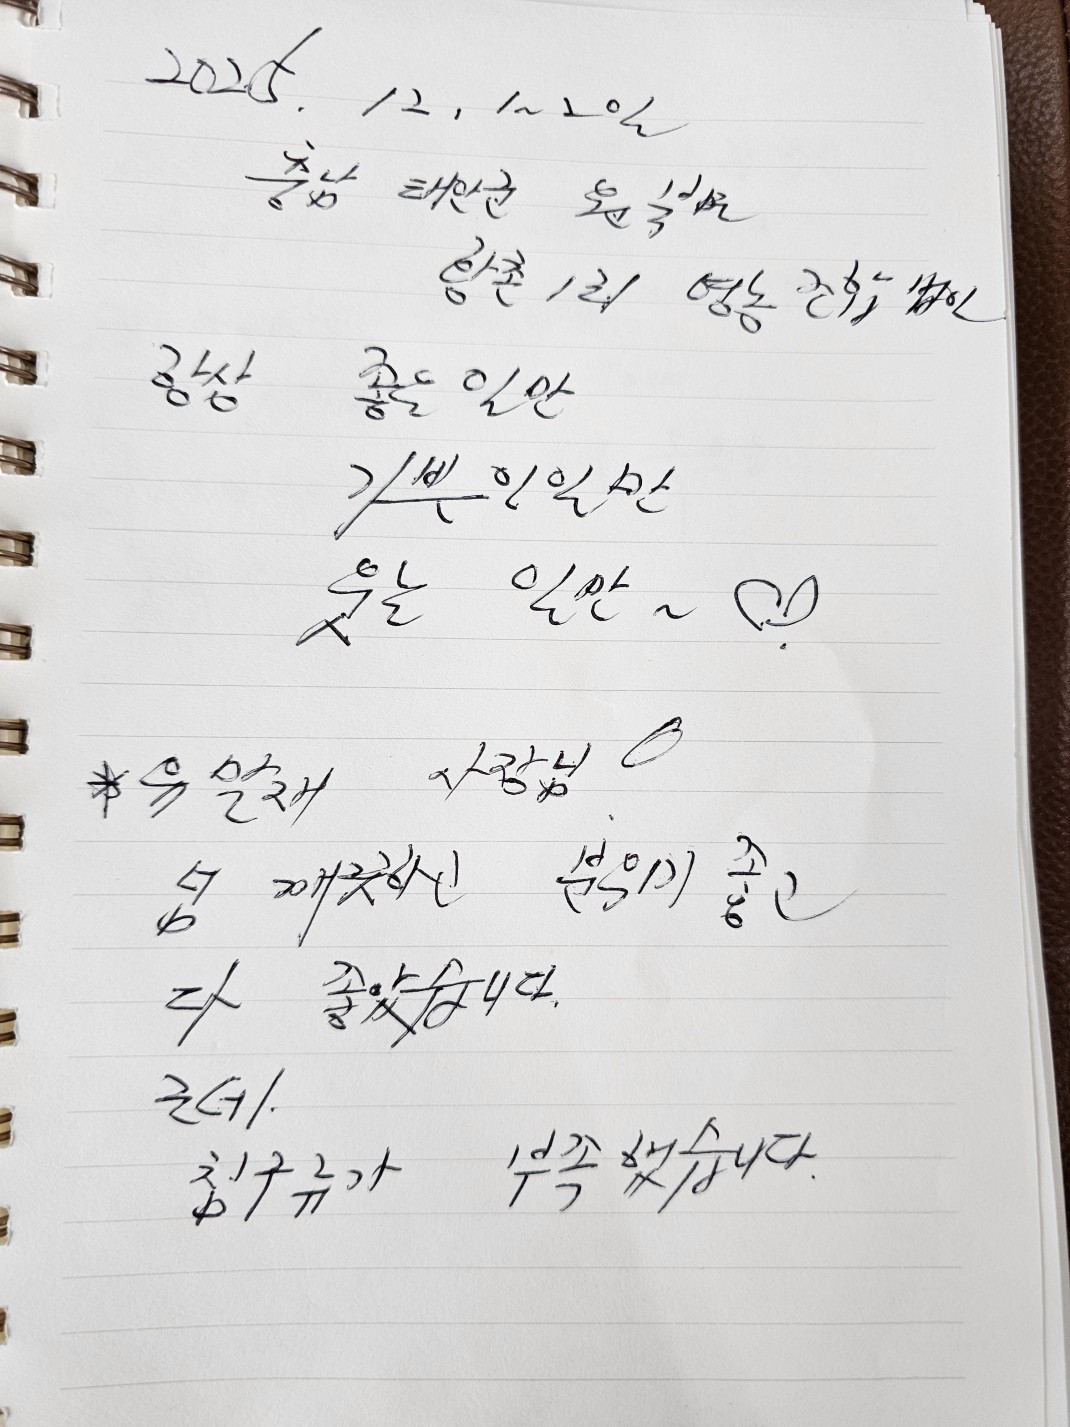 2025. 12. 1~2일
충남 태안군 원북면
황촌 1리 영농조합법인
항상 좋은 일만
기쁜 일만
웃는 일만~♡
* 유 사장님
넘 깨끗하신 분위기 좋고
다 좋았습니다.
근데.
침구류가 부족했습니다.